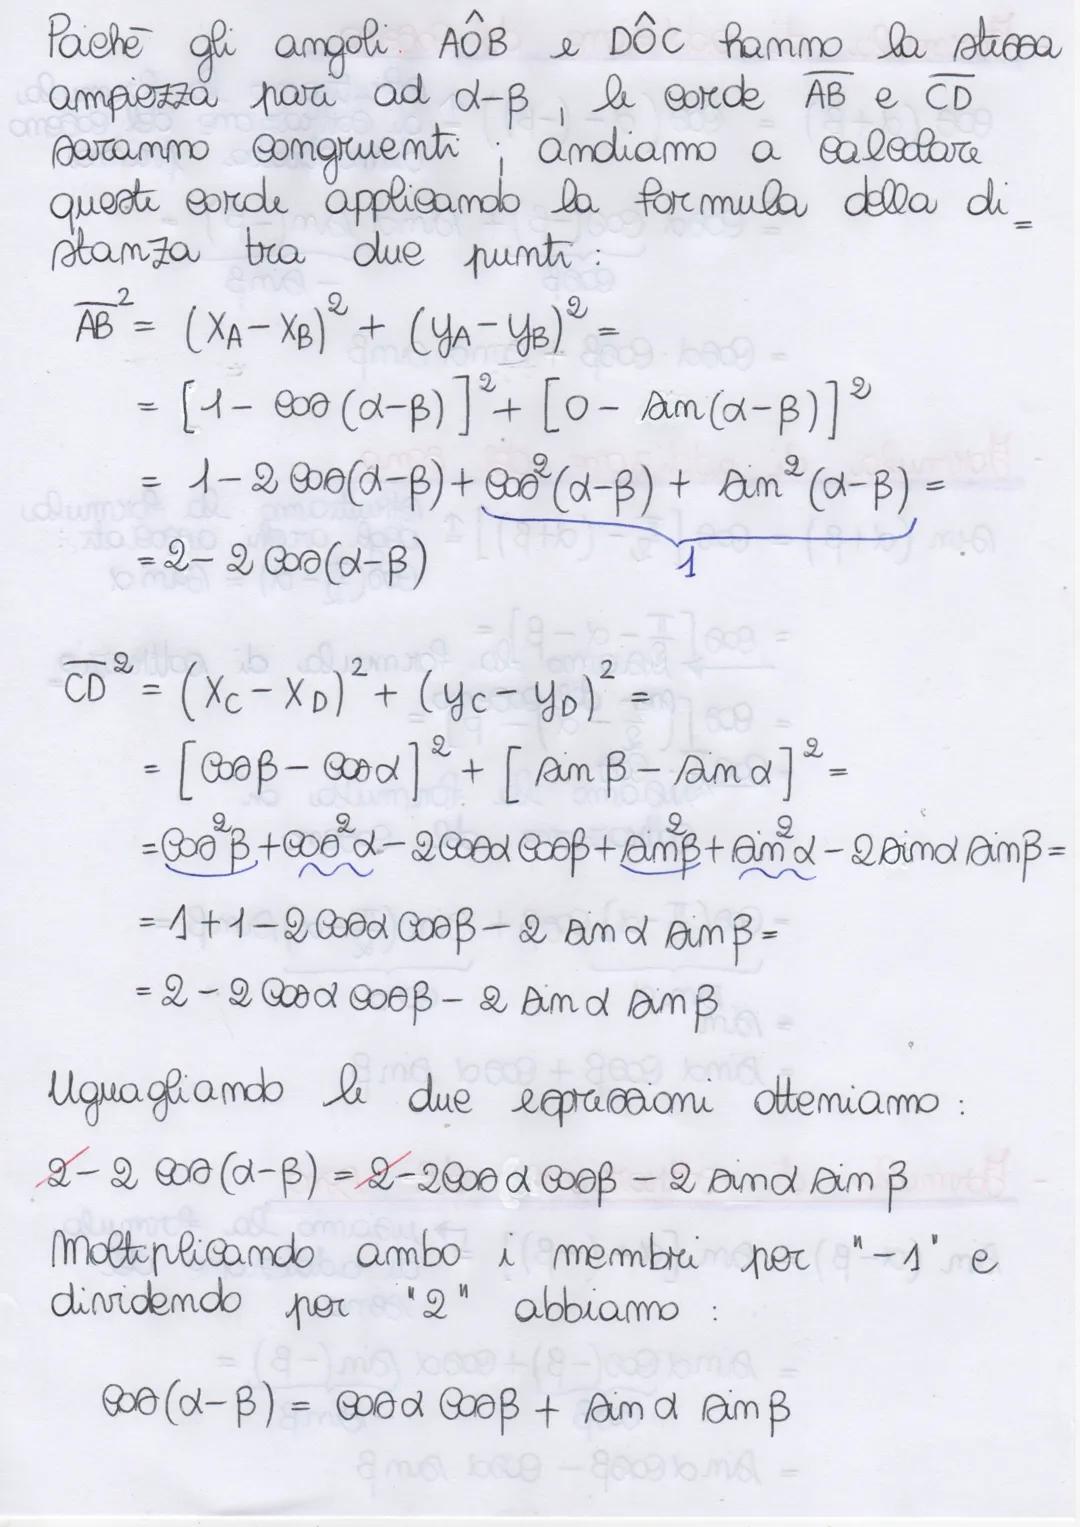 Poiché gli angoli AÔB e DÔC hanno la stessa
ampiezza pari ad α-β, le corde AB e CD
saranno congruenti; andiamo a calcolare
queste corde applicando la formula della di_
stanza tra due punti:
AB² = (xA - xB)² + (yA - yB)² =
= [1 - cos(α-β)]² + [0 - sin(α-β)]²
= 1 - 2 cos(α-β) + cos²(α-β) + sin²(α-β) =
1
= 2 - 2 cos(α-β)
CD² = (xC - xD)² + (yC - yD)² =
= [cosβ - cosα]² + [sinβ - sinα]² =
= cos²β + cos²α - 2cosα cosβ + sin²β + sin²α - 2 sinα sinβ =
= 1 + 1 - 2 cosα cosβ - 2 sinα sinβ =
= 2 - 2 cosα cosβ - 2 sinα sinβ
Uguagliando le due espressioni otteniamo:
2 - 2 cos(α-β) = 2 - 2cosα cosβ - 2 sinα sinβ
Moltiplicando ambo i membri per "-1" e
dividendo per "2" abbiamo:
cos(α-β) = cosα cosβ + sinα sinβ